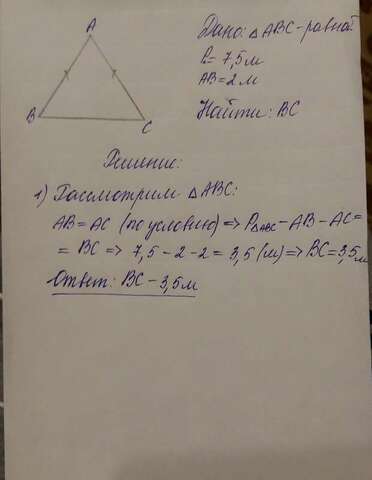 A
B
C
Дано: △ABC - равноб.
P = 7,5м
AB = 2м
Найти: BC
Решение:
1) Рассмотрим △ABC:
AB = AC (по условию) => P△ABC - AB - AC =
= BC => 7,5 - 2 - 2 = 3,5 (м) => BC = 3,5м
Ответ: BC - 3,5м